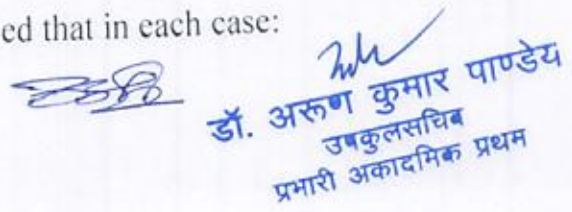 ed that in each case:
डॉ. अरूण कुमार पाण्डेय
उपकुलसचिव
प्रभारी अकादमिक प्रथम